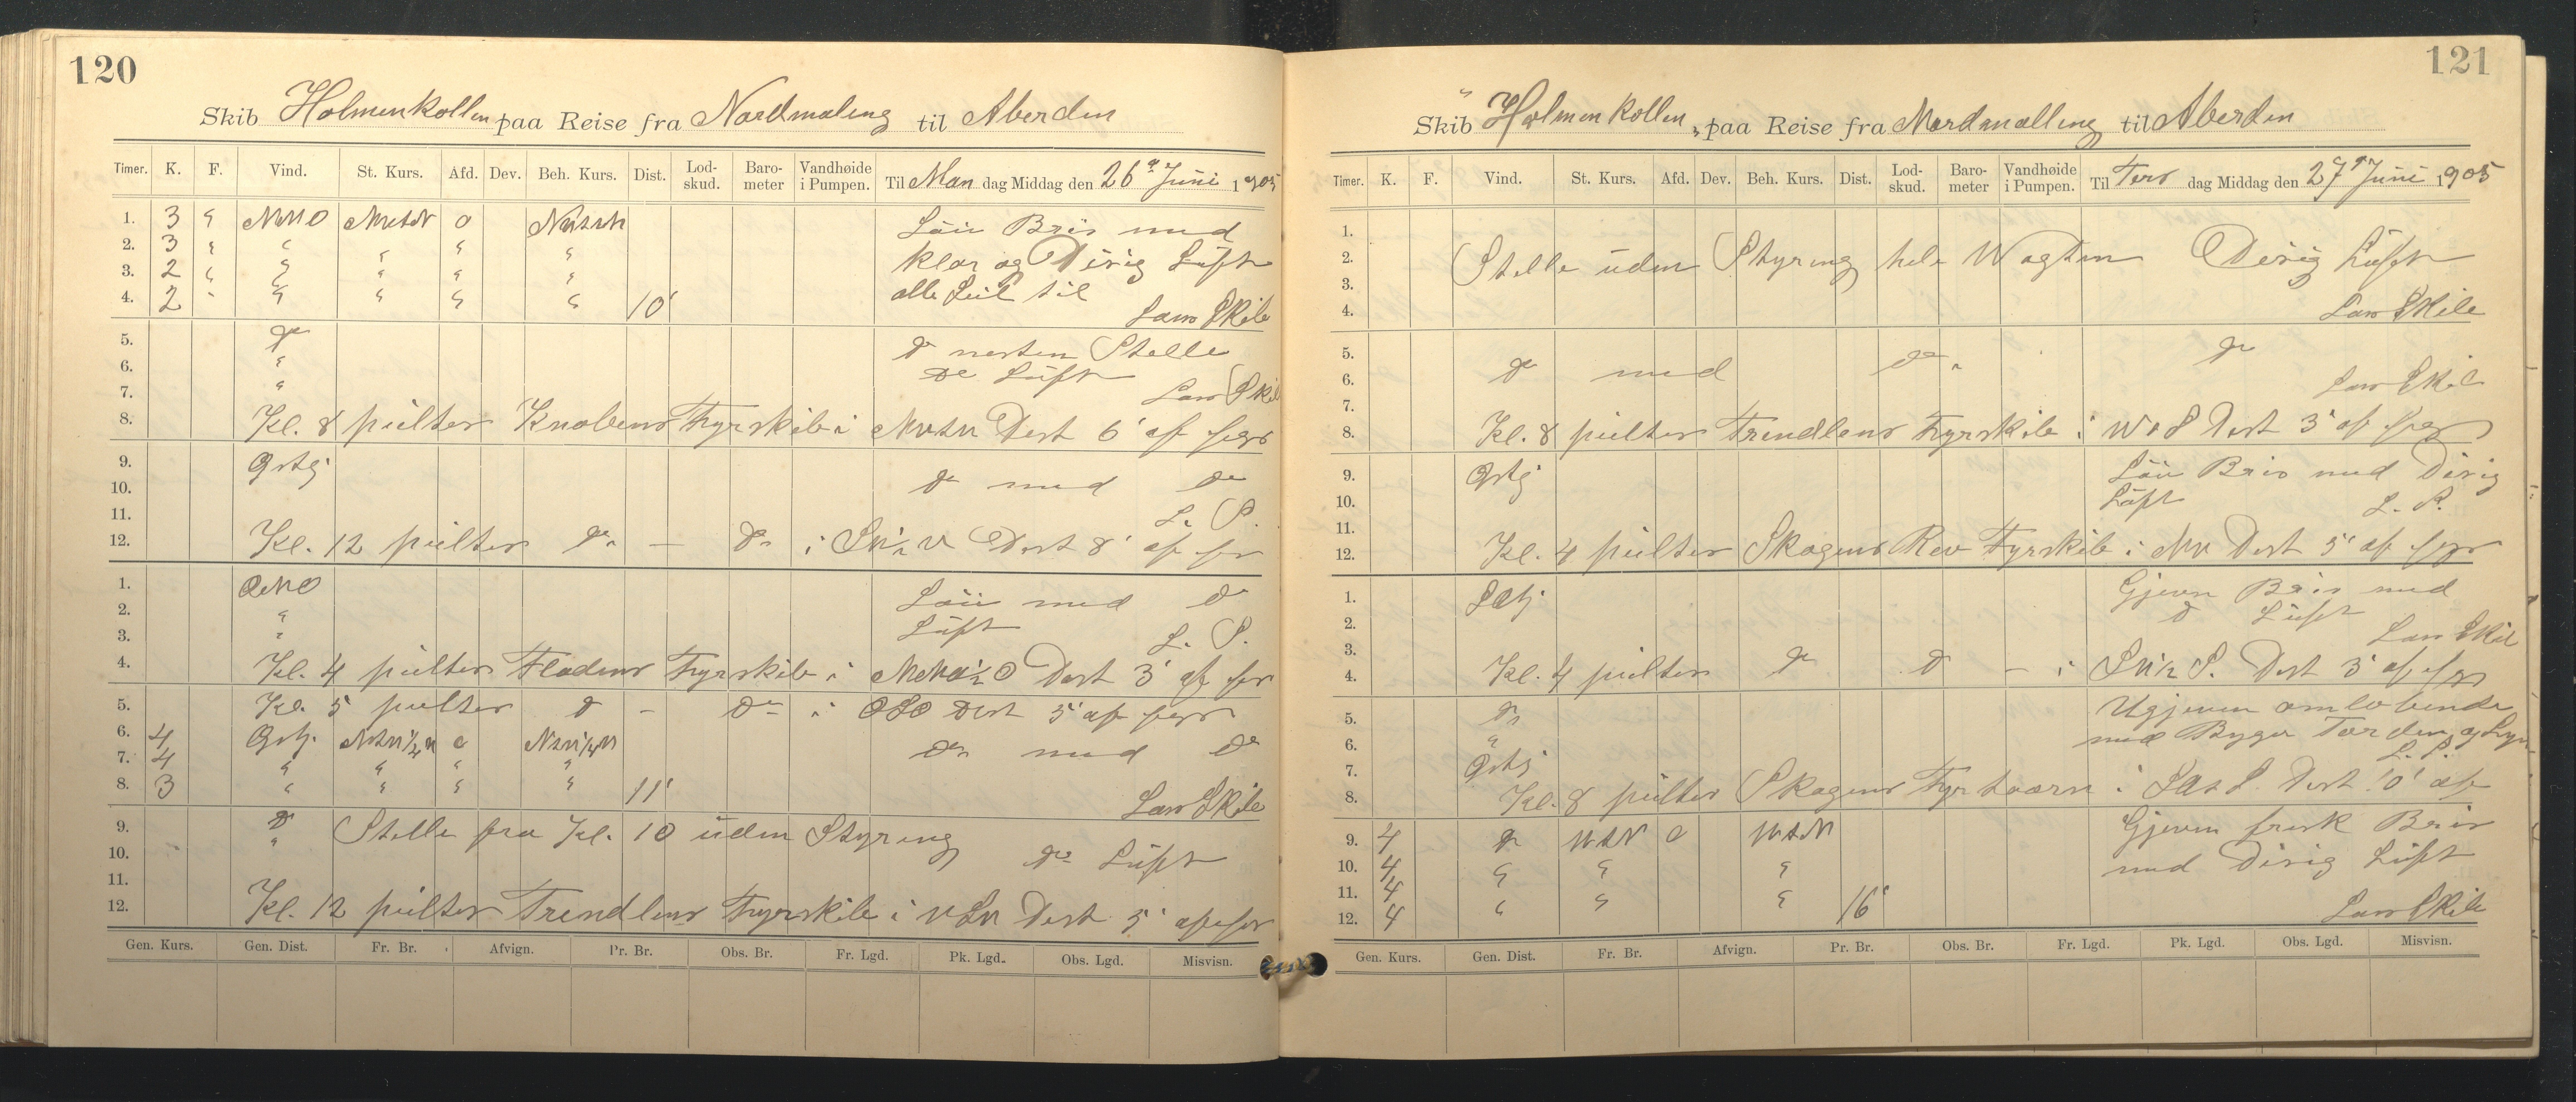 120
Skib Holmenkollen paa Reise fra Nordmaling til Aberden
Timer. K. F. Vind. St. Kurs. Afd. Dev. Beh. Kurs. Dist. Lod-skud. Baro-meter Vandhøide i Pumpen. Til Man dag Middag den 26 Juni 1905
1. 3 " NNO o Laü Bris med
2. 3 " " " " " klar og Disig Lüft
3. 2 " " " " " alle Seil til
4. 2 " " " " " 10' Lars Skile
5. do do nesten Stille
6. " do Lüft
7. " Lars Skil
8. Kl. 8 peilter Knobens Fyrskib i Dist 6' af fyr
9. do med do
10.
11. L. S.
12. Kl. 12 peilter do — do i Dist 8' af fyr
1. Laü med do
2. " Lüft
3. " L. S.
4. Kl. 4 peilter Fladens Fyrskib i Dist 3' af fyr
5. Kl. 5 peilter do - do i OSO Dist 5' af fyr
6. 4 o do med do
7. 4 " " " "
8. 3 " " " " 11' Lars Skile
9. do Stille fra Kl. 10 üden Styring
10. " do Lüft
11.
12. Kl. 12 peilter Trendlens Fyrskib i Dist 5' af fyr
Gen. Kurs. Gen. Dist. Fr. Br. Afvign. Pr. Br. Obs. Br. Fr. Lgd. Pk. Lgd. Obs. Lgd. Misvisn.
121
Skib "Holmenkollen" paa Reise fra Nordmalling til Aberden
Timer. K. F. Vind. St. Kurs. Afd. Dev. Beh. Kurs. Dist. Lod-skud. Baro-meter Vandhøide i Pumpen. Til Tirs dag Middag den 27 Juni 1905
1.
2. Stille üden Styring hele Wagten Disig Lüft
3.
4. Lars Skile
5. do
6. do med do
7. Lars Skil
8. Kl. 8 peilter Trendlens Fyrskib i Dist 3' af fyr
9. Laü Bris med Disig
10. Lüft L. S.
11.
12. Kl. 4 peilter Skagens Rev Fyrskib i Dist 5' af fyr
1. Gjeven Bris med
2. do Lüft
3. Lars Skil
4. Kl. 4 peilter do do - i Dist 3' af fyr
5. do Ugjeven omløbende
6. " med Byger Torden og Lyn
7. L. S.
8. Kl. 8 peilter Skagens Fyrtaarn i Dist 10' af
9. 4 do o Gjeven frisk Bris
10. 4 " " " med Disig Lüft
11. 4
12. 4 " " " 16' Lars Skile
Gen. Kurs. Gen. Dist. Fr. Br. Afvign. Pr. Br. Obs. Br. Fr. Lgd. Pk. Lgd. Obs. Lgd. Misvisn.